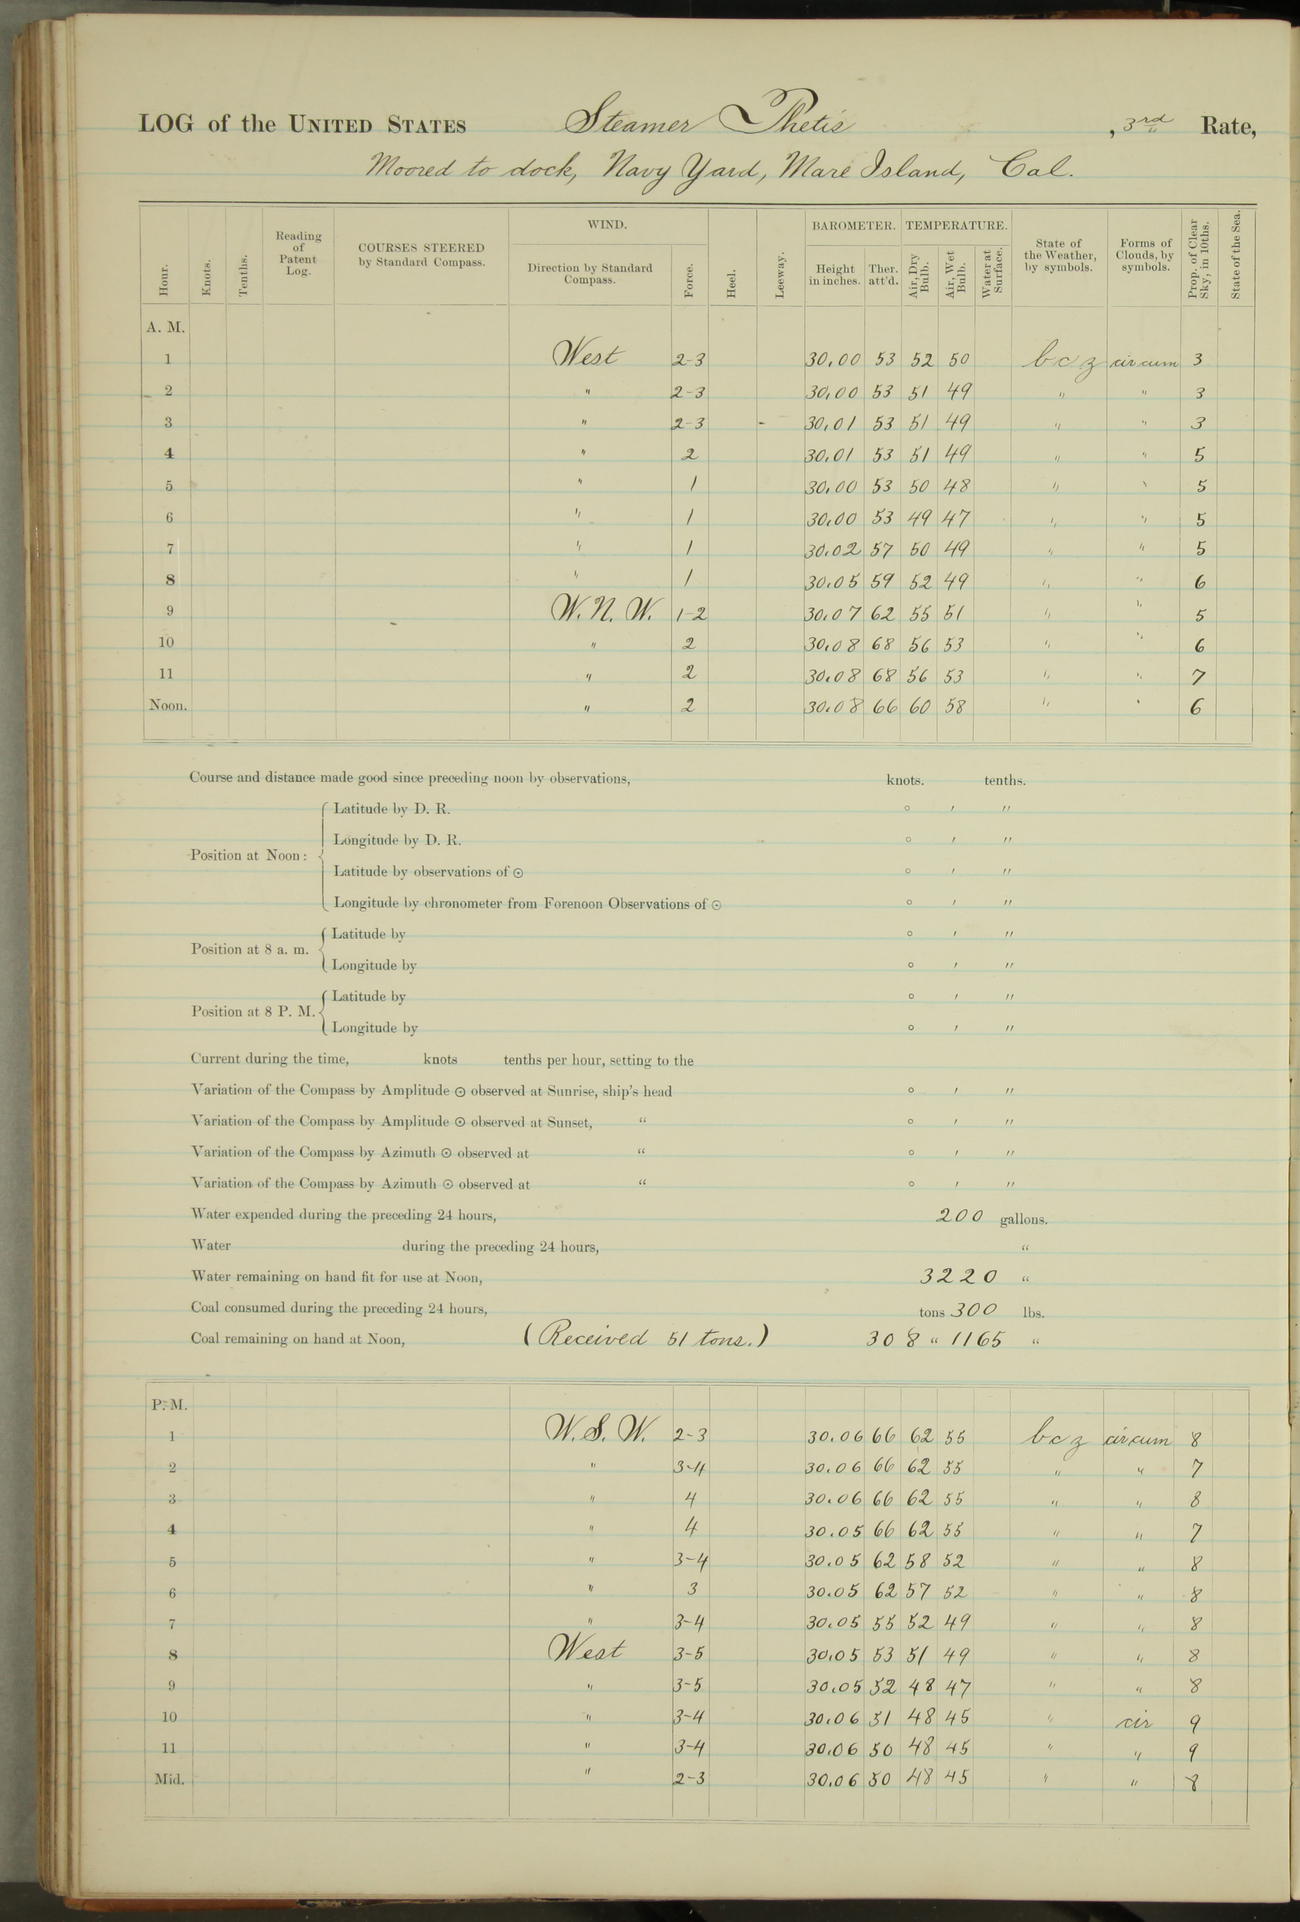 LOG of the UNITED STATES Steamer Thetis, 3rd Rate,
Moored to dock, Navy Yard, Mare Island, Cal.
Hour. Knots. Tenths. Reading of Patent Log. COURSES STEERED by Standard Compass. WIND. Direction by Standard Compass. Force. Heel. Leeway. BAROMETER. Height in inches. Ther. att'd. TEMPERATURE. Air, Dry Bulb. Air, Wet Bulb. Water at Surface. State of the Weather, by symbols. Forms of Clouds, by symbols. Prop. of Clear Sky, in 10ths. State of the Sea.
A. M.
1 West 2-3 30.00 53 52 50 b c z cir cum 3
2 " 2-3 30.00 53 51 49 " " 3
3 " 2-3 - 30.01 53 51 49 " " 3
4 " 2 30.01 53 51 49 " " 5
5 " 1 30.00 53 50 48 " " 5
6 " 1 30.00 53 49 47 " " 5
7 " 1 30.02 57 50 49 " " 5
8 " 1 30.05 59 52 49 " " 6
9 W. N. W. 1-2 30.07 62 55 51 " " 5
10 " 2 30.08 68 56 53 " " 6
11 " 2 30.08 68 56 53 " " 7
Noon. " 2 30.08 66 60 58 " " 6
Course and distance made good since preceding noon by observations, knots. tenths.
Latitude by D. R. ° ′ ″
Longitude by D. R. ° ′ ″
Position at Noon:
Latitude by observations of ⊙ ° ′ ″
Longitude by chronometer from Forenoon Observations of ⊙ ° ′ ″
Position at 8 a. m. Latitude by ° ′ ″
Longitude by ° ′ ″
Position at 8 P. M. Latitude by ° ′ ″
Longitude by ° ′ ″
Current during the time, knots tenths per hour, setting to the
Variation of the Compass by Amplitude ⊙ observed at Sunrise, ship's head ° ′ ″
Variation of the Compass by Amplitude ⊙ observed at Sunset, “ ° ′ ″
Variation of the Compass by Azimuth ⊙ observed at “ ° ′ ″
Variation of the Compass by Azimuth ⊙ observed at “ ° ′ ″
Water expended during the preceding 24 hours, 200 gallons.
Water during the preceding 24 hours, “
Water remaining on hand fit for use at Noon, 3220 “
Coal consumed during the preceding 24 hours, tons 300 lbs.
Coal remaining on hand at Noon, (Received 51 tons.) 308 “ 1165 “
P. M.
1 W. S. W. 2-3 30.06 66 62 55 b c z cir cum 8
2 " 3-4 30.06 66 62 55 " " 7
3 " 4 30.06 66 62 55 " " 8
4 " 4 30.05 66 62 55 " " 7
5 " 3-4 30.05 62 58 52 " " 8
6 " 3 30.05 62 57 52 " " 8
7 " 3-4 30.05 55 52 49 " " 8
8 West 3-5 30.05 53 51 49 " " 8
9 " 3-5 30.05 52 48 47 " " 8
10 " 3-4 30.06 51 48 45 " cir 9
11 " 3-4 30.06 50 48 45 " " 9
Mid. " 2-3 30.06 50 48 45 " " 8